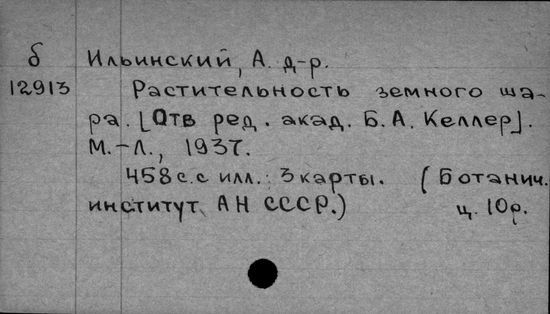 б Ильинский, А. д-р.
12913 Растительность земного ша-
ра. [Отв ред. акад. Б.А. Келлер].
М.-Л., 1937.
458 с. с илл.: 3 карты. (Ботанич.
институт АН СССР.) ц. 10 р.